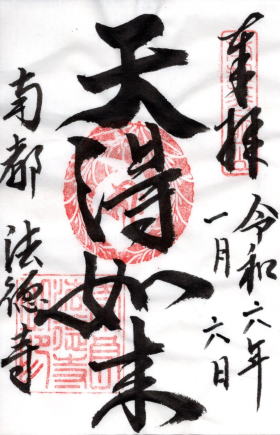 奉拝
令和六年
一月六日
天得如来
南都 法徳寺